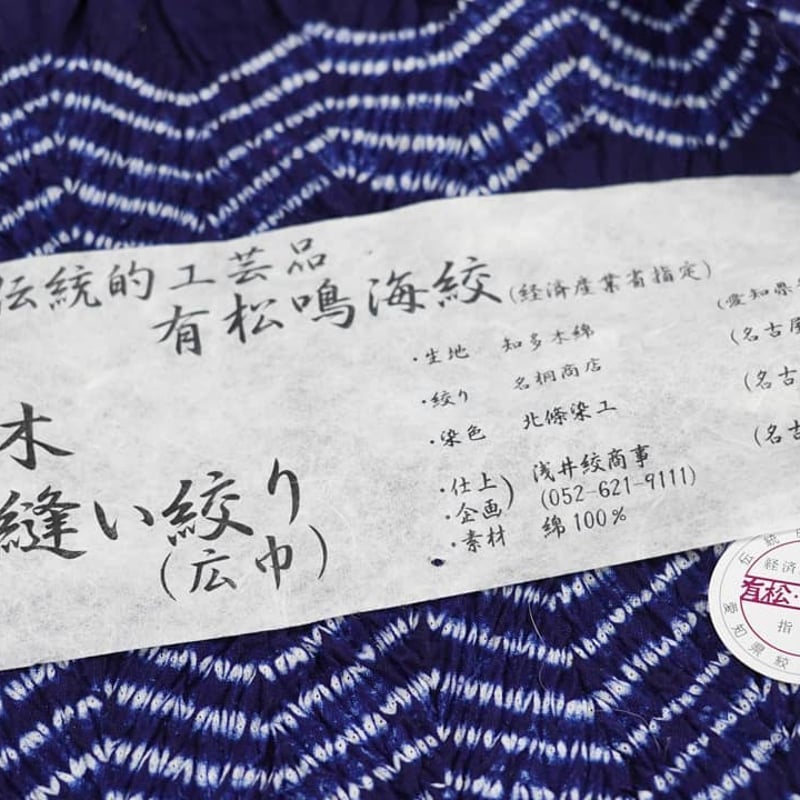 伝統的工芸品
有松鳴海絞(経済産業省指定)
木
縫い絞り
(広巾)
・生地 知多木綿
・絞り 名桐商店
・染色 北條染工
・仕上
・企画
浅井絞商事
(052-621-9111)
・素材 綿100%
(愛知県
(名古屋
(名古
(名古
伝統
経済
有松・
指
愛知県絞